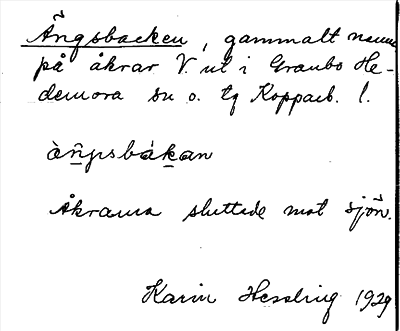 Ängsbacken, gammalt namn
på åkrar V. ut i Granbo He-
demora sn o. tg Kopparb. l.
àŋsbákan
Åkrarna sluttade mot sjön.
Karin Hessling 1929